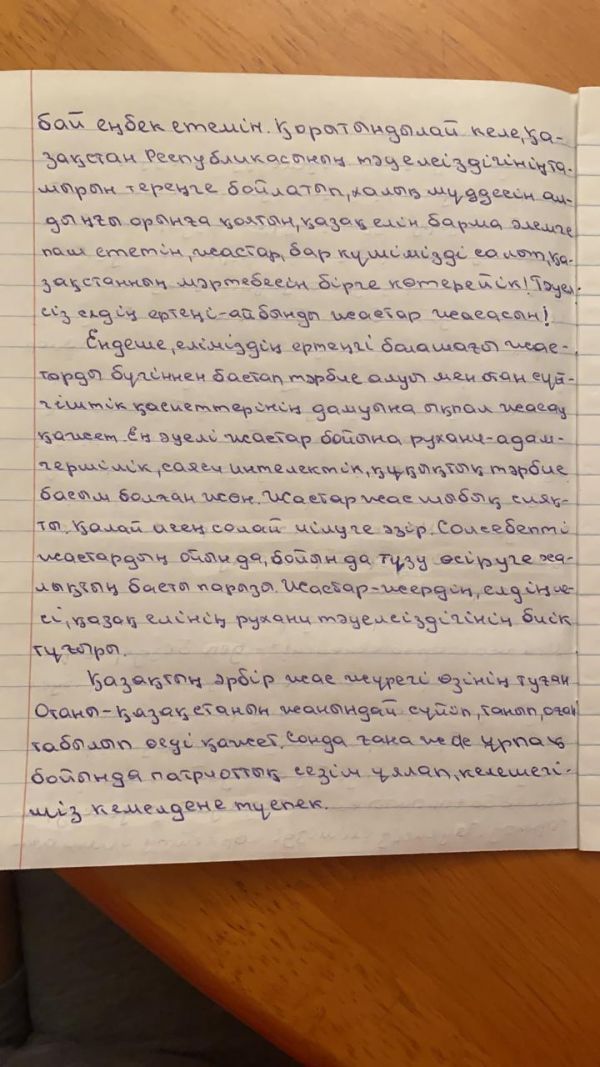 бай еңбек етемін. Қорытындылай келе, Қа-
зақстан Республикасының тәуелсіздігінің та-
мырын тереңге бойлатып, халық мүддесін ал-
дыңғы орынға қоятын, қазақ елін барша әлемге
паш ететін, жастар, бар күшімізді салып, Қа-
зақстанның мәртебесін бірге көтерейік! Тәуел-
сіз елдің ертеңі-айбынды жастар жасасын!
Ендеше, еліміздің ертеңгі болашағы жас-
тарды бүгіннен бастап тәрбие алуы мен отан сүй-
гіштік қасиеттерінің дамуына ықпал жасау
қажет. Ең әуелі жастар бойына рухани-адам-
гершілік, саяси интелектік, құқықтық тәрбие
басым болған жөн. Жастар жас шыбық сияқ-
ты, қалай исең солай иілуге әзір. Сол себепті
жастардың ойын да, бойын да түзу өсіруге ха-
лықтың басты парызы. Жастар-жердің, елдің ие-
сі, қазақ елінің рухани тәуелсіздігінің биік
тұғыры.
Қазақтың әрбір жас жүрегі өзінің туған
Отаны-Қазақстанын жанындай сүйіп, танып, оған
табылып өсуі қажет. Сонда ғана жас ұрпақ
бойында патриоттық сезім ұялап, келешегі-
міз кемелдене түспек.